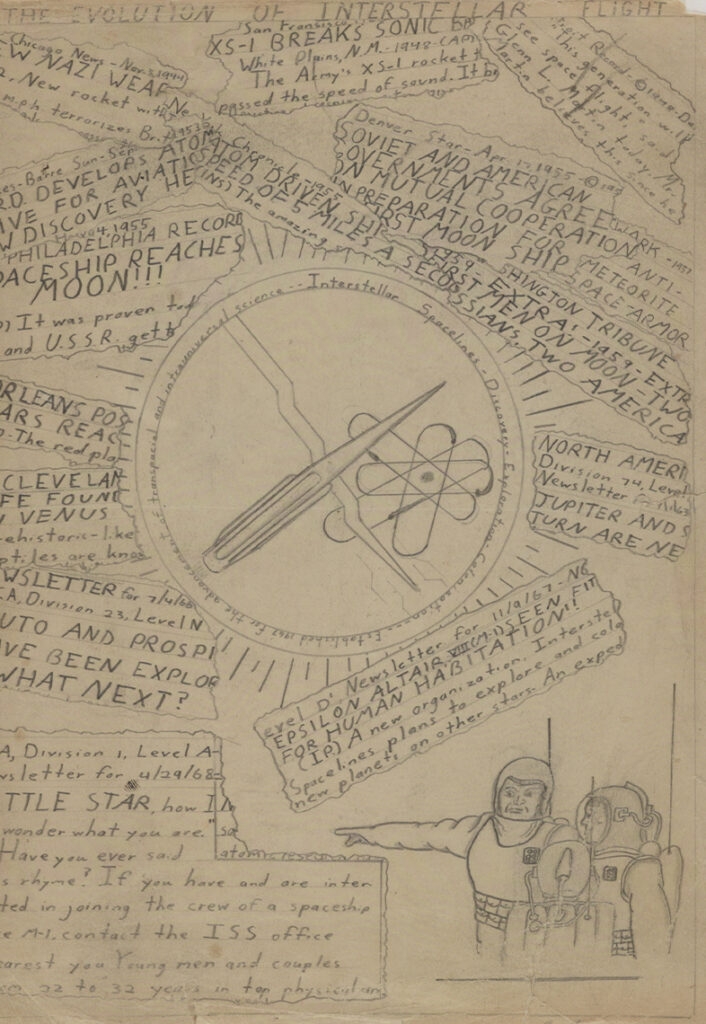 THE EVOLUTION OF INTERSTELLAR FLIGHT
Chicago News - Nov. 8, 1944
EW NAZI WEAP
New rocket with
m.p.h terrorizes Br
San Fransisc
XS-1 BREAKS SONIC
White Plains, N.M. - 1948 - (AP)
The Army's XS-1 rocket
passed the speed of sound. It
This generation will
see space flight, said
Glenn L. Martin today. Mr.
Martin believes this since he
es-Barre Sun-Sep
RD DEVELOPS ATOM
VE FOR AVIATI
W DISCOVERY HE
Chronicle - 1955
ATOM DRIVEN SHIP
SPEED OF 5 MILES A SEC
INS) The amazing
Denver Star - Apr. 17, 1955 -
SOVIET AND AMERICAN
GOVERNMENTS AGREE
ON MUTUAL COOPERATION
IN PREPARATION FOR
FIRST MOON SHIP
WARK - 1957
ANTI-
METEORITE
SPACE-ARMOR
4, 1955
PHILADELPHIA RECORD
PACESHIP REACHES
MOON!!!
It was proven tod
and U.S.S.R. gett
SHINGTON TRIBUNE
1959 - EXTRA! - 1959 - EXTR
FIRST MEN ON MOON, TWO
OSSIANS, TWO AMERICA
ORLEANS POS
ARS REAC
The red pla
CLEVELAN
FE FOUND
VENUS
ehistoric-like
ptiles are know
NORTH AMERI
Division 74, Level
Newsletter
JUPITER AND S
TURN ARE NE
Interstellar Spacelines - Discovery - Exploration - Colonization - Established 1967 for the advancement of transpacial and intrauniversal science --
WSLETTER for 7/4/66
.A, Division 23, Level N
UTO AND PROSPI
AVE BEEN EXPLOR
WHAT NEXT?
evel D' Newsletter for 11/9/67 - N
EPSILON ALTAIR VIII (M-1) SEEN FIT
FOR HUMAN HABITATION!!
(IP) A new organization, Interste
Spacelines plans to explore and colo
new planets on other stars. An exped
A, Division 1, Level A-
wsletter for 4/29/68-
TTLE STAR, how I
wonder what you are."
Have you ever said
s rhyme? If you have and are inter
ted in joining the crew of a spaceship
e M-1, contact the ISS office
earest you Young men and couples
22 to 32 years in top physical